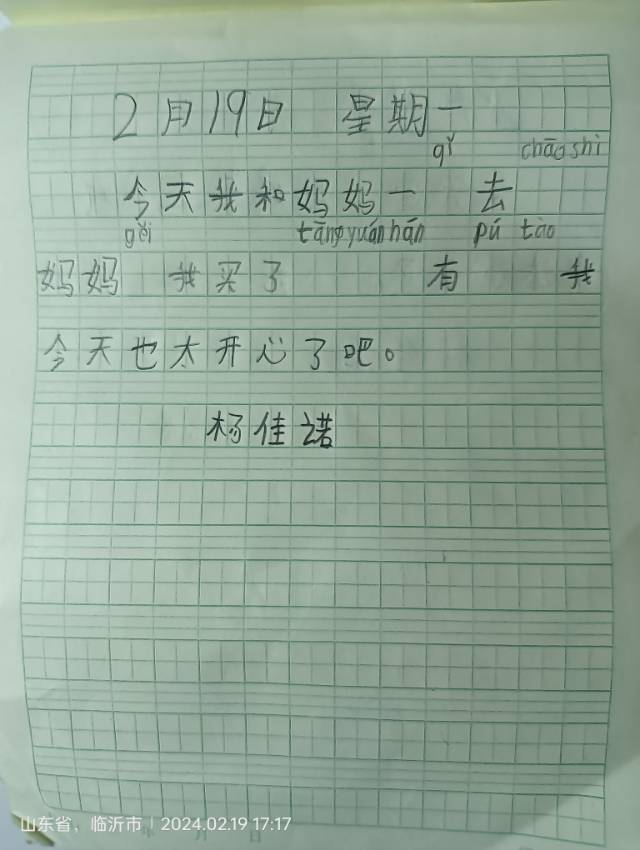 2月19日 星期一
qǐ chāo shì
今天我和妈妈一 去
gěi tāng yuán hán pú tào
妈妈 我买了 有 我
今天也太开心了吧。
杨佳诺
山东省，临沂市 | 2024.02.19 17:17